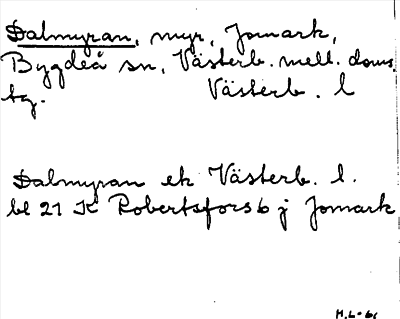 Dalmyran, myr, Jomark,
Bygdeå sn, Västerb. mell. doms.
tg. Västerb. l
Dalmyran ek Västerb. l.
bl 21 K Robertsfors 6 j Jomark
H.L-61